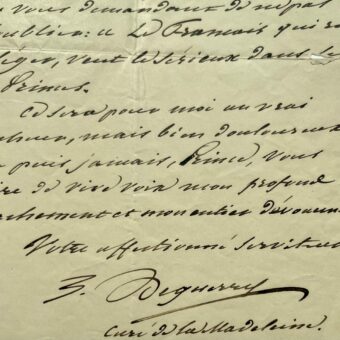 vous demandant de ne pas
oublier: "Le Français qui r
léger, veut le sérieux dans le
Princes.
Ce sera pour moi un vrai
heur, mais bien douloureux
puis jamais, Prince, vous
ire de vive voix mon profond
chement et mon entier dévouem
Votre affectionné serviteur
Deguerry
curé de la Madeleine.